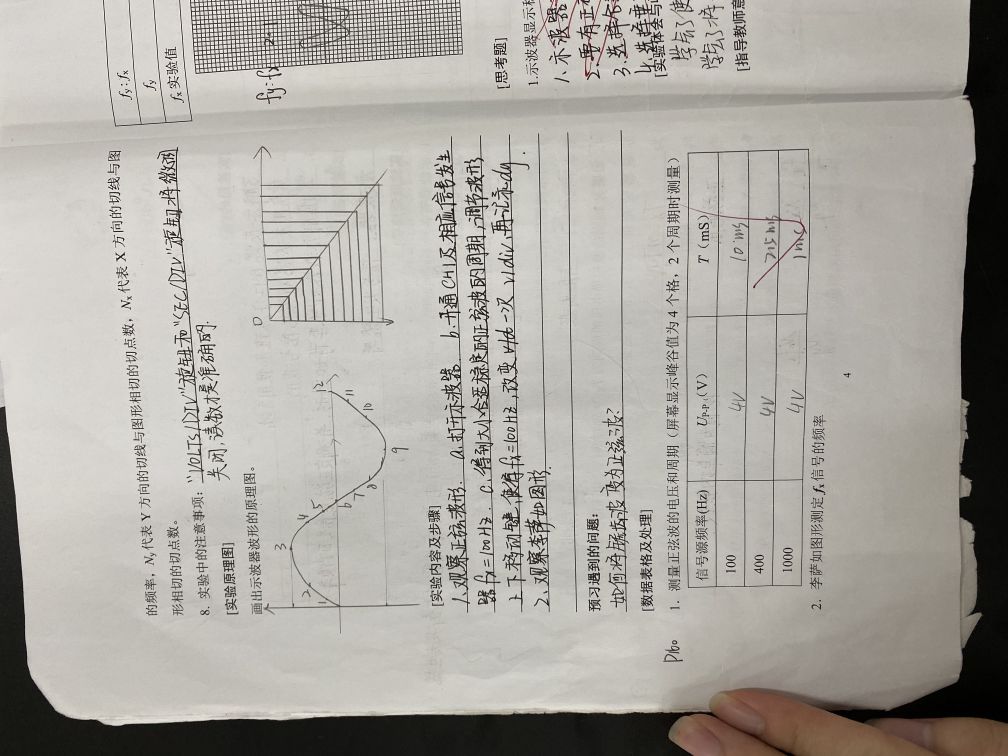 的频率，Ny代表 Y 方向的切线与图形相切的切点数，Nx代表 X 方向的切线与图
形相切的切点数。
8. 实验中的注意事项：“VOLTS/DIV”旋钮和“SEC/DIV”旋钮将微调
关闭,读数才是准确的.
[实验原理图]
画出示波器波形的原理图。
1 2 3 4 5 6 7 8 9 10 11 12
0
[实验内容及步骤]
1、观察正弦波形. a.打开示波器. b.开通CH1及相应信号发生
器fx=100Hz. c.得到大小合适稳定的正弦波的周期,调节波形
上下移动键,使得fx=100Hz,改变 一次 v/div,再记录dy.
2、观察李萨如图形.
预习遇到的问题：
如何将锯齿波变为正弦波?
[数据表格及处理]
P160
1. 测量正弦波的电压和周期（屏幕显示峰谷值为 4 个格，2 个周期时测量）
信号源频率(Hz) UP-P（V） T（mS）
100 4V 10ms
400 4V 2.5ms
1000 4V 1ms
2. 李萨如图形测定 fx 信号的频率
4
fy:fx
fy
fx 实验值
fy:fx 2:1
[思考题]
1.示波器显示
1、示波器
2.要有正
3.选择合
4.选择
[实验体会与
学会了使
学会了将
[指导教师意